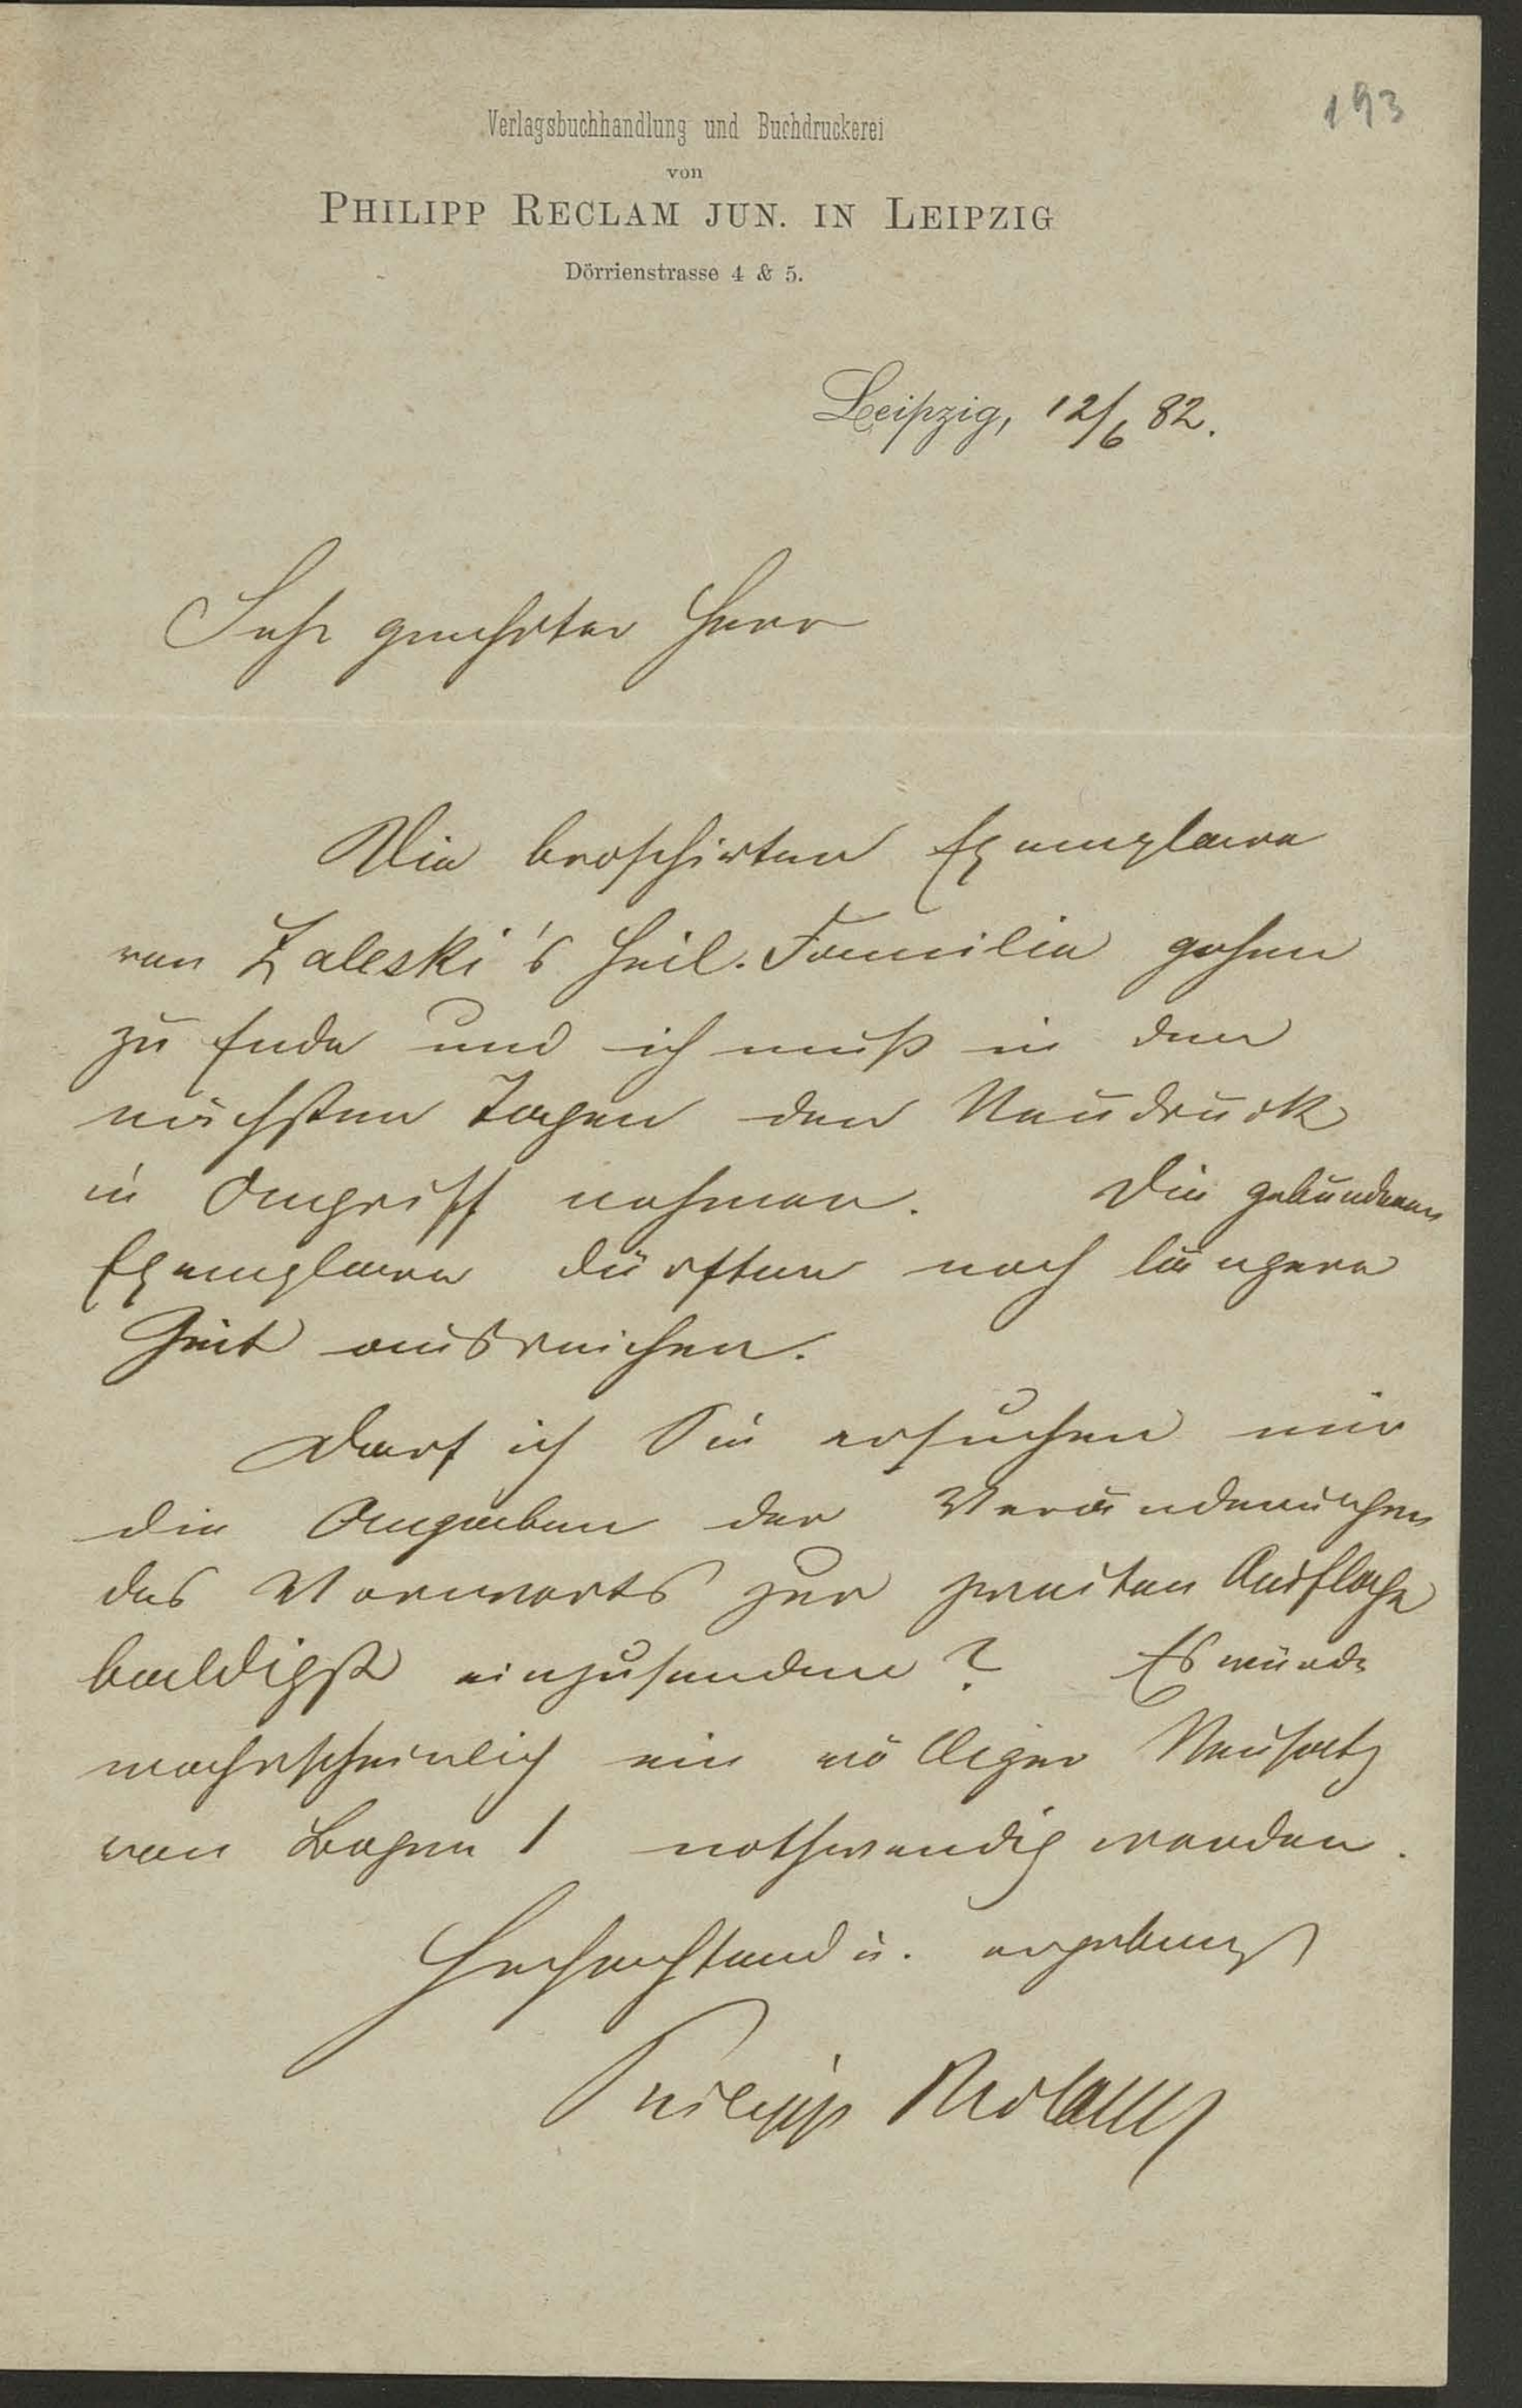 193
Verlagsbuchhandlung und Buchdruckerei
von
PHILIPP RECLAM JUN. IN LEIPZIG
Dörrienstrasse 4 & 5.
Leipzig, 12/6 82.
Sehr geehrter Herr
Die broschirten Exemplare
von Zaleski's heil. Familie gehen
zu Ende und ich muß in den
nächsten Tagen den Neudruck
in Angriff nehmen. Die gebundenen
Exemplare dürften noch längere
Zeit ausreichen.
Darf ich Sie ersuchen mir
die Angaben der Veränderungen
des Vorworts zur zweiten Auflage
baldigst einzusenden? Es würde
wahrscheinlich ein völliger Neusatz
von Bogen 1 nothwendig werden.
Hochachtend u. ergebenst
Philipp Reclam